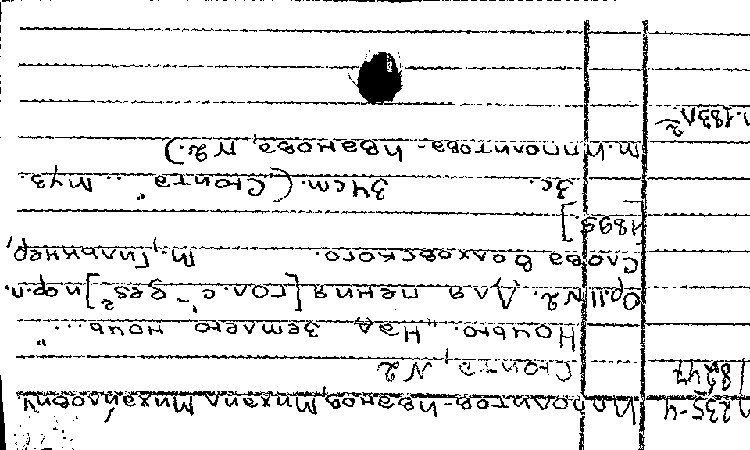 235-4 Ипполитов-Иванов, Михаил Михайлович
18247 Сюита, N2
Ночью. "Над землею ночь..."
Op.11 N2. Для пения [гол. c'-ges²] и ф.п.
Слова Волховского. М., Гильнер,
1895]
3с. 34см. (Сюита... Муз.
М. Ипполитова-Иванова, N2.)
183л
2